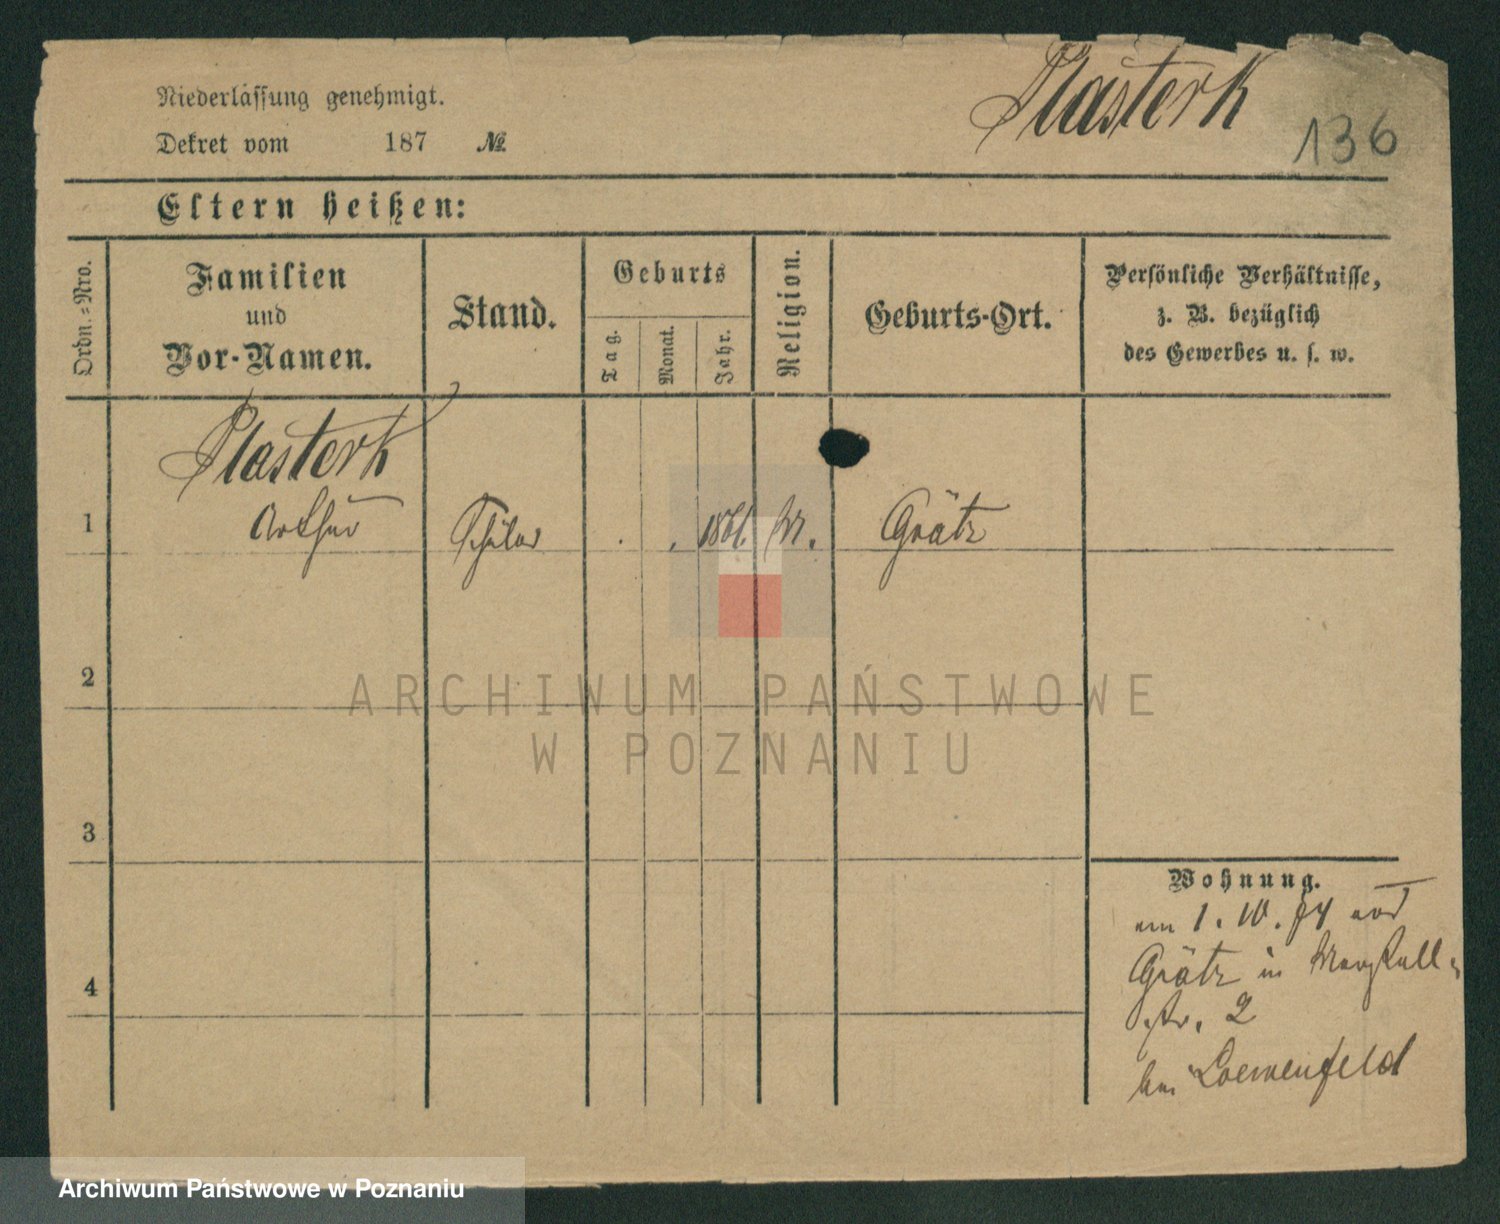 Niederlassung genehmigt.
Dekret vom 187 №
Plasterk
136
Eltern heißen:
Ordn.=Nro.
Familien
und
Vor-Namen.
Stand.
Geburts
Tag.
Monat.
Jahr.
Religion.
Geburts-Ort.
Persönliche Verhältnisse,
z. B. bezüglich
des Gewerbes u. s. w.
Plasterk
1 Arthur Schüler 1861. Grätz
2
3
4
Wohnung.
am 1. 10. 74 aus
Grätz in
str. 2
bei Loewenfeld
ARCHIWUM PAŃSTWOWE
W POZNANIU
Archiwum Państwowe w Poznaniu